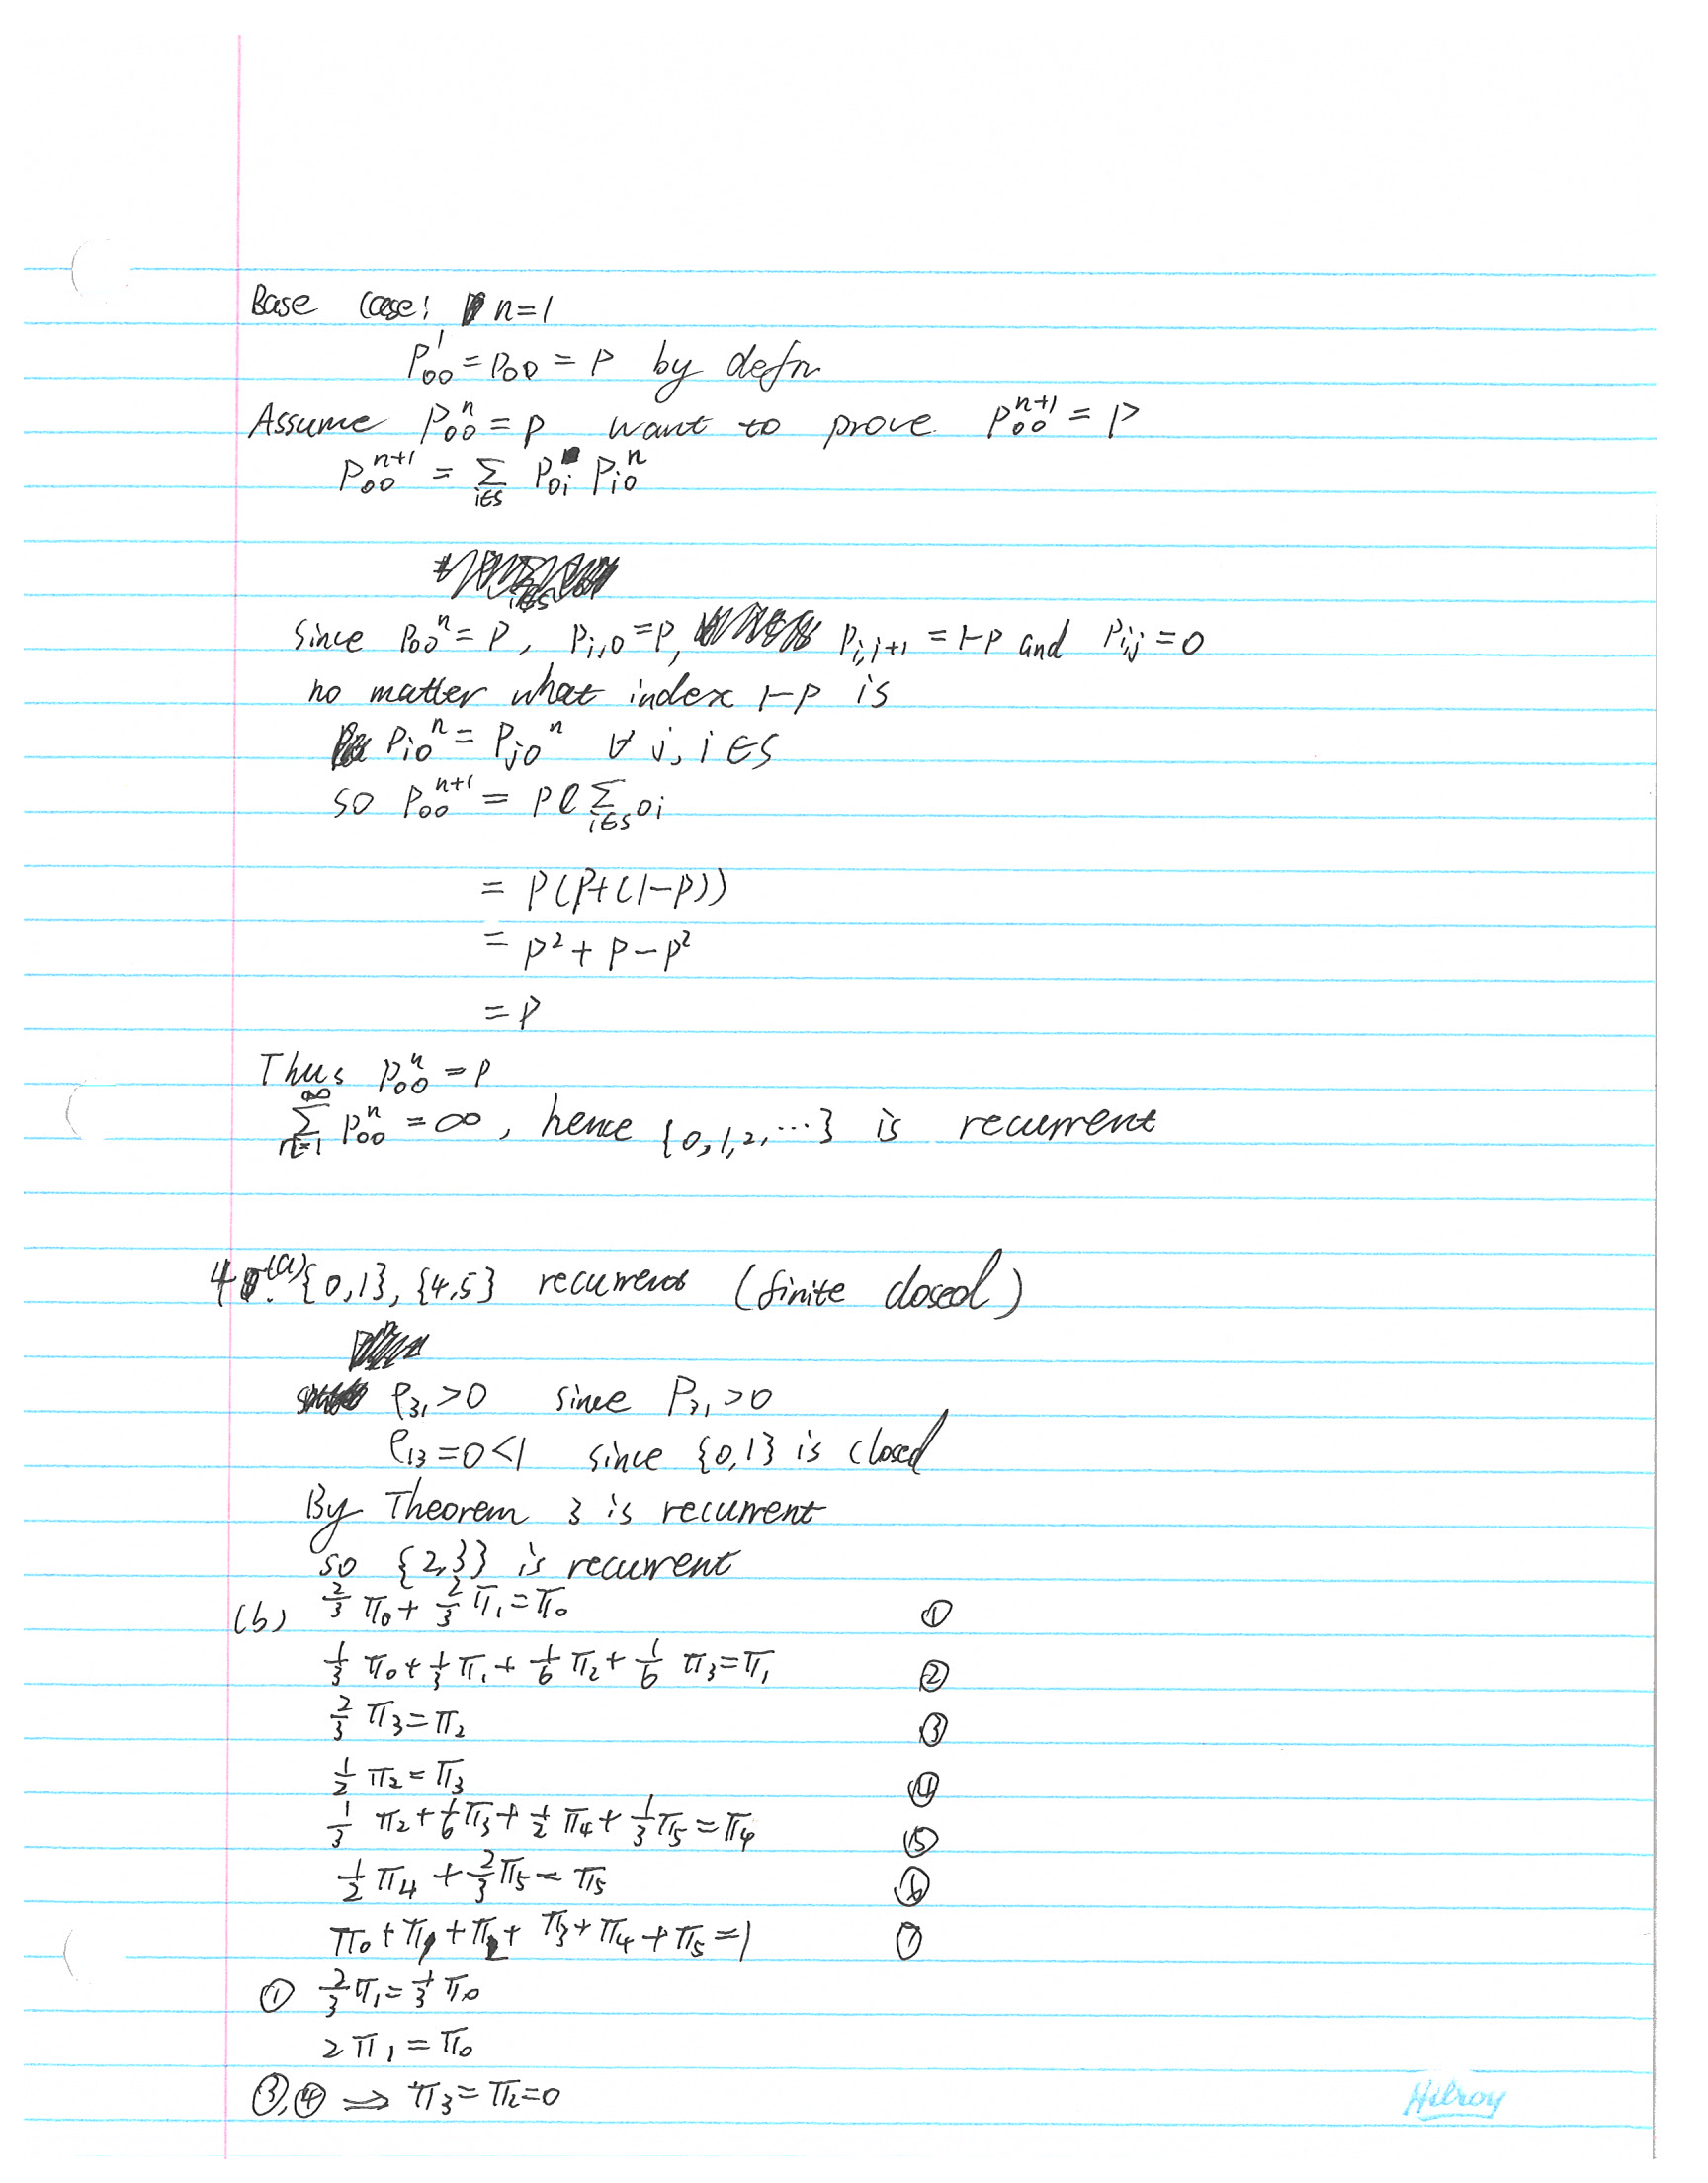 Base case: n=1
P¹₀₀ = P₀₀ = P by defn
Assume P₀₀ⁿ = p want to prove P₀₀ⁿ⁺¹ = P
P₀₀ⁿ⁺¹ = Σ_{i∈S} P₀ᵢ Pᵢ₀ⁿ
Since P₀₀ⁿ = P, Pᵢ,₀ = P, Pᵢ,ᵢ₊₁ = 1-P and Pᵢ,ⱼ = 0
no matter what index 1-P is
Pᵢ₀ⁿ = Pⱼ₀ⁿ ∀ j, i ∈ S
so P₀₀ⁿ⁺¹ = P Σ_{i∈S} 0i
= P(P+(1-P))
= P² + P - P²
= P
Thus P₀₀ⁿ = P
Σ_{n=1}^∞ P₀₀ⁿ = ∞, hence {0,1,2,...} is recurrent
4. (a) {0,1}, {4,5} recurrent (finite closed)
ρ₃₁ > 0 since P₃₁ > 0
ρ₁₃ = 0 < 1 since {0,1} is closed
By Theorem 3 is recurrent
so {2,3} is recurrent
(b) 2/3 π₀ + 2/3 π₁ = π₀ ①
1/3 π₀ + 1/3 π₁ + 1/6 π₂ + 1/6 π₃ = π₁ ②
2/3 π₃ = π₂ ③
1/2 π₂ = π₃ ④
1/3 π₂ + 1/6 π₃ + 1/2 π₄ + 1/3 π₅ = π₄ ⑤
1/2 π₄ + 2/3 π₅ = π₅ ⑥
π₀ + π₁ + π₂ + π₃ + π₄ + π₅ = 1 ⑦
① 2/3 π₁ = 1/3 π₀
2 π₁ = π₀
③,④ ⟹ π₃ = π₂ = 0
Hilroy